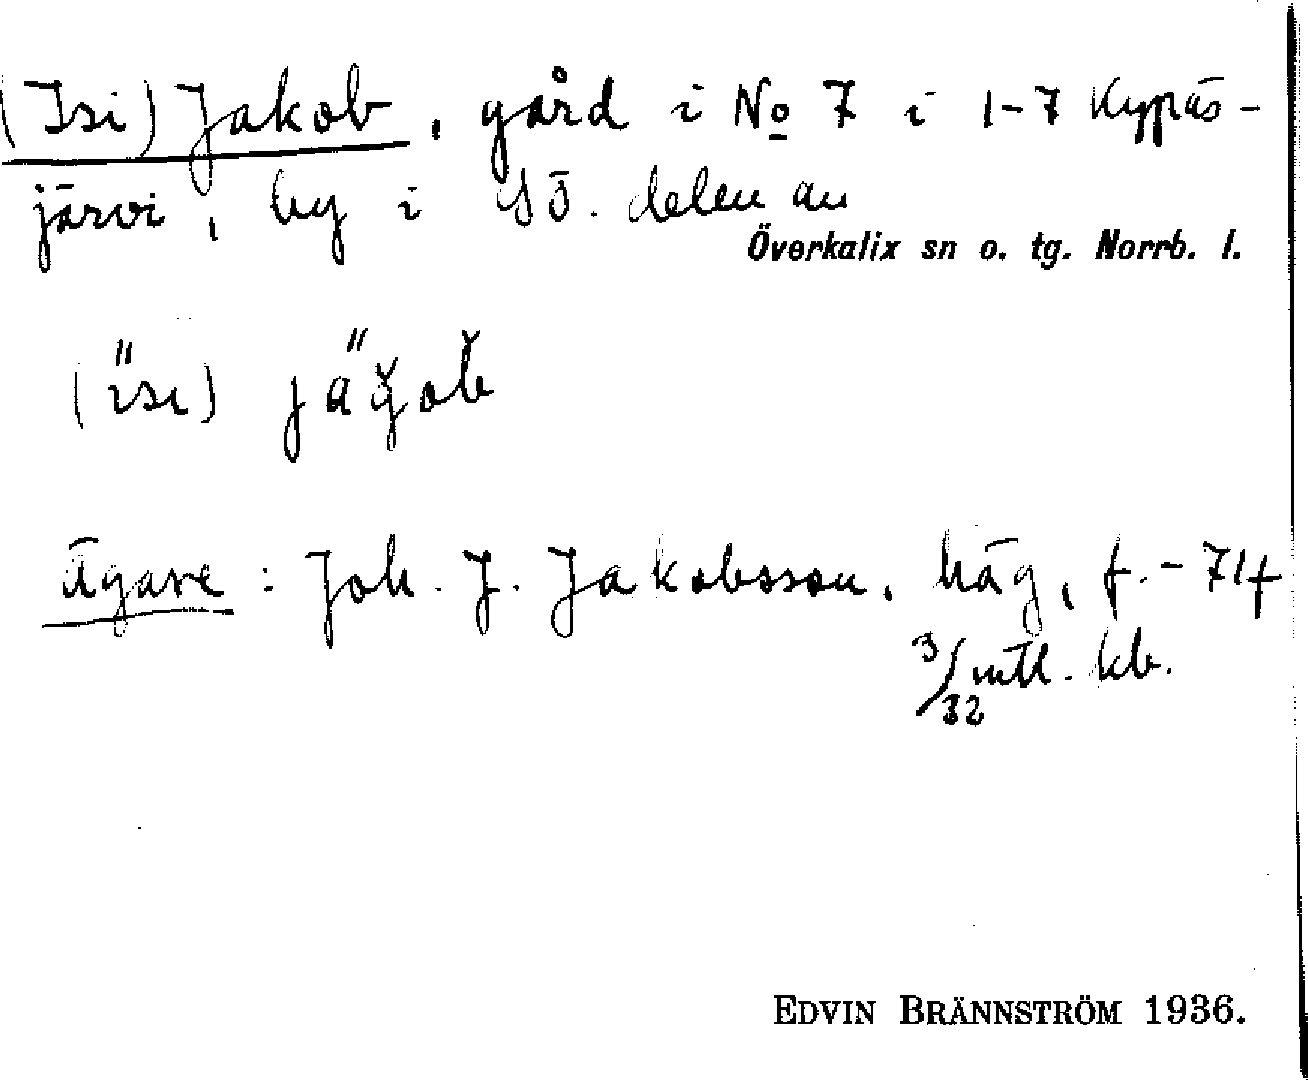 (Isi) Jakob, gård i No 7 i 1-7 Kypäs-
järvi, by i SÖ. delen av
Överkalix sn o. tg. Norrb. l.
(isi)
Ägare: Joh. J. Jakobsson, häg, f. -74
3/32 mtl. kb.
EDVIN BRÄNNSTRÖM 1936.